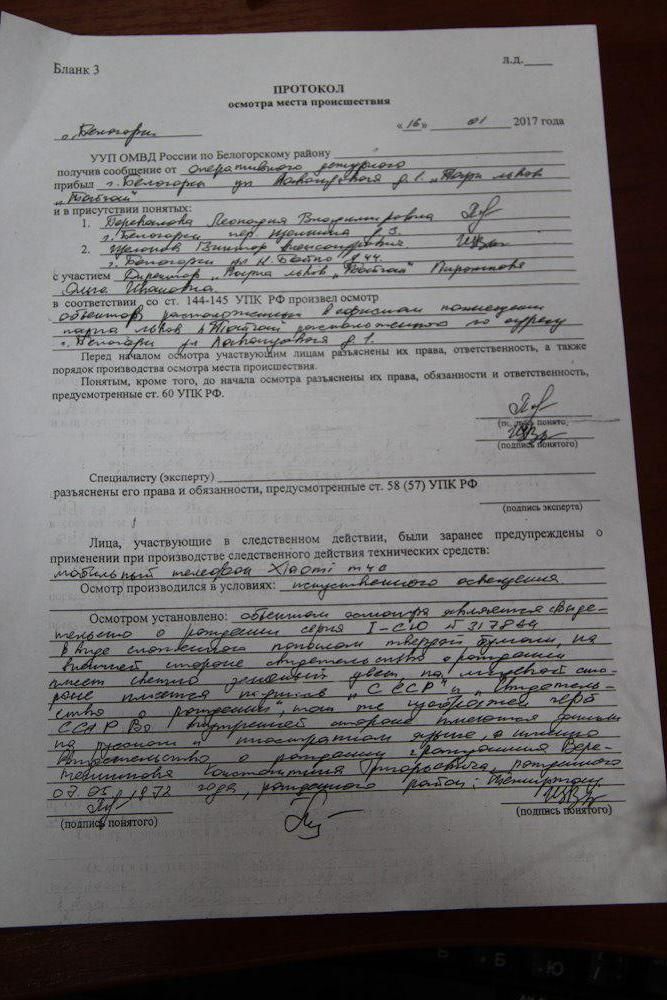 Бланк 3
л.д.
ПРОТОКОЛ
осмотра места происшествия
г. Белогорск «16» 01 2017 года
УУП ОМВД России по Белогорскому району
получив сообщение от оперативного дежурного
прибыл г. Белогорск ул д. 1 „Парк львов
„Тайган"
и в присутствии понятых:
1. Леонидия Владимировна
г. Белогорск пер д. 3.
2. Виктор Александрович
г. Белогорск ул д 44.
с участием Директор „Парка львов „Тайган"
Ольга Ивановна
в соответствии со ст. 144-145 УПК РФ произвел осмотр
объектов расположенных в офисном помещении
парка львов „Тайган" расположенного по адресу
г. Белогорск ул д. 1.
Перед началом осмотра участвующим лицам разъяснены их права, ответственность, а также
порядок производства осмотра места происшествия.
Понятым, кроме того, до начала осмотра разъяснены их права, обязанности и ответственность,
предусмотренные ст. 60 УПК РФ.
(подпись понятого)
(подпись понятого)
Специалисту (эксперту)
разъяснены его права и обязанности, предусмотренные ст. 58 (57) УПК РФ
(подпись эксперта)
Лица, участвующие в следственном действии, были заранее предупреждены о
применении при производстве следственного действия технических средств:
мобильный телефон Xiaomi m4c
Осмотр производился в условиях: искусственного освещения
Осмотром установлено: объектом осмотра является свиде-
тельство о рождении серия I-СЮ № 317844
в виде сложенного пополам твердой бумаги, на
внешней стороне свидетельство о рождении
имеет светло зеленый цвет, на лицевой сто-
роне имеется „СССР" и „Свидетель-
ство о рождении", так же изображен герб
СССР. Во внутренней стороне имеются данные
на русском и иностранном языке, а именно
свидетельство о рождении гражданина Вере-
Константина Григорьевича, рожденного
07.05.1972 года, район:
(подпись понятого)
(подпись понятого)
Б
Ю